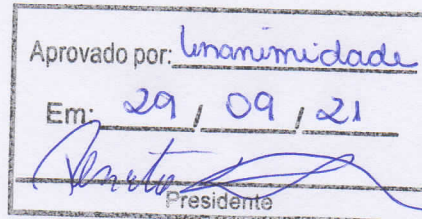 Aprovado por: Unanimidade
Em: 29 / 09 / 21
Presidente